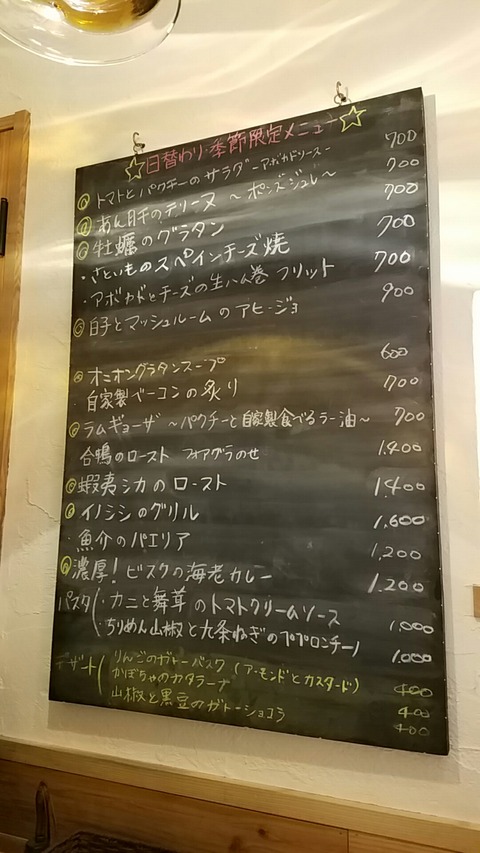 ☆日替わり・季節限定メニュー☆
トマトとパクチーのサラダ -アボカドソース- 700
あん肝のテリーヌ 〜ポンズジュレ〜 700
牡蠣のグラタン 700
・さといものスペインチーズ焼 700
・アボカドとチーズの生ハム巻 フリット 700
白子とマッシュルームのアヒージョ 900
オニオングラタンスープ 600
・自家製ベーコンの炙り 700
ラムギョーザ 〜パクチーと自家製食べるラー油〜 700
合鴨のロースト フォアグラのせ 1,400
蝦夷シカのロースト 1,400
イノシシのグリル 1,600
・魚介のパエリア 1,200
濃厚!ビスクの海老カレー 1,200
パスタ(・カニと舞茸のトマトクリームソース 1,000
・ちりめん山椒と九条ねぎのペペロンチーノ 1,000
デザート(りんごのガトーバスク(アーモンドとカスタード) 400
かぼちゃのカタラーナ 400
山椒と黒豆のガトーショコラ 400